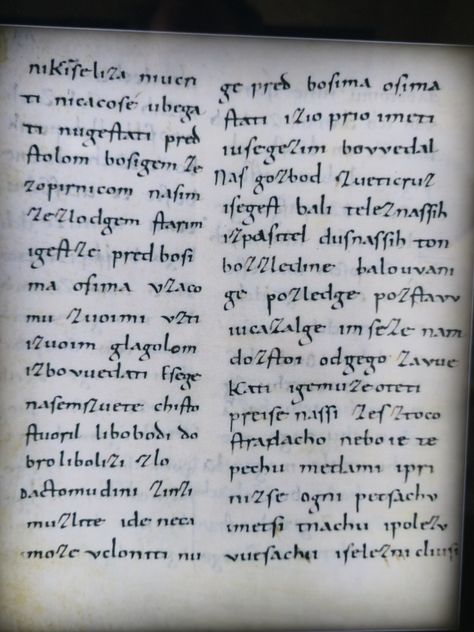 nikiſeliza mucri
ti nicacoſe ubega
ti nugeſtati pred
ſtolom boſigem ze
zopirnicom naſim
zezlodgem ſtarim
igeſtze predboſi
ma oſima vzaco
mu zuoimi vzti
izuoim glagolom
izbovuedati Eſege
naſemzuete chiſto
ſtuoril libobodi do
brolibolizi zlo
Dactomudini zinzi
muzlite ide neca
moze vcloniti nu
ge pred boſima oſima
ſtati izio prio imeti
iuſegezim bovvedal
Naſ gozbod zueticruz
iſegeſt bali teleznaſſih
izpaſitel dusnaſſih ton
bozzledine balouvani
ge pozledge pozſtavv
iucazalge imſeze nam
dozſtoi odgego zavue
kati igemuze oteti
preiſe naſſi zeſztoco
ſtradacho nebo ie te
pechu metlami ipri
nizſe ogni petſachv
imetſi tnachu ipolezv
vueſachu iſelezni cliuſi